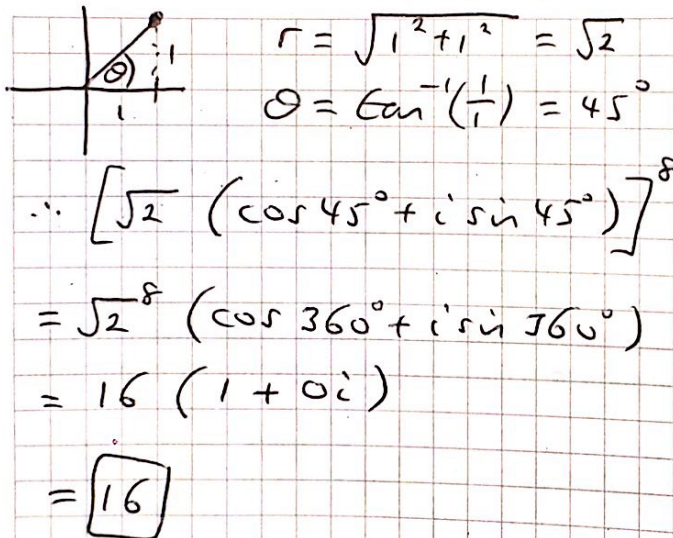 θ 1
1
r = √(1² + 1²) = √2
θ = tan⁻¹(1/1) = 45°
∴ [√2 (cos 45° + i sin 45°)]⁸
= √2⁸ (cos 360° + i sin 360°)
= 16 (1 + 0i)
= 16